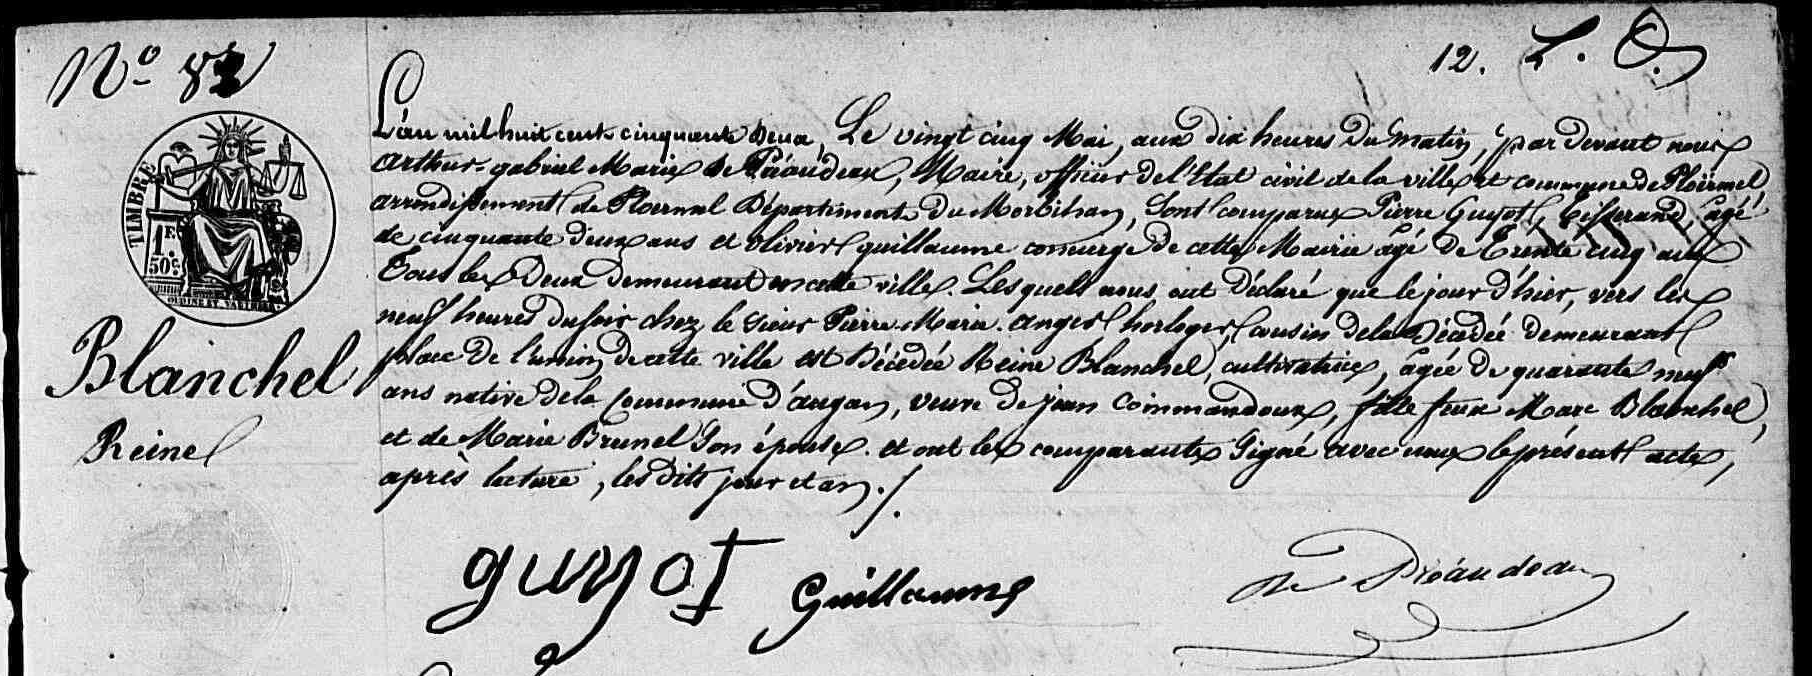 N° 82
12. L. O.
TIMBRE
1 F.
50 C.
Blanchel
Reine
L'an mil huit cent cinquante deux, Le vingt cinq Mai, aux dix heures du matin, par devant nous
arthur gabriel Marie de Préaudeau, Maire, officier de l'Etat civil de la ville et commune de Ploërmel,
arrondissement de Ploermel Département du Morbihan, Sont comparus Pierre Guyot, Tisserand, agé
de cinquante deux ans et olivier guillaume concierge de cette Mairie agé de Trente cinq ans
Tous les Deux demeurant en cette ville. Lesquels nous ont Déclaré que le jour d'hier, vers les
neuf heures du soir chez le sieur Pierre Marie anger horloger, cousin de la Décédée demeurant
place de l'union de cette ville est Décédée Reine Blanchel, cultivatrice, agée de quarante neuf
ans native de la Commune d'augan, veuve de jean Commandoux, fille feux Marc Blanchel,
et de Marie Brunel Son épouse. et ont les comparants Signé avec nous le présent acte,
après lecture, les dits jour et an ./.
guyot
Guillaume
De Préaudeau